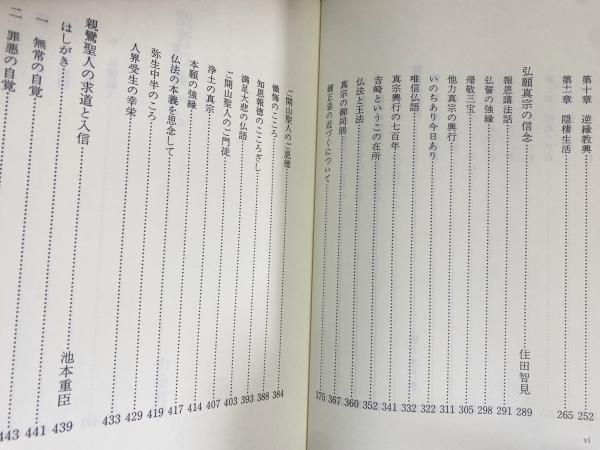 第十章　逆縁教興……252
第十一章　隠棲生活……265
弘願真宗の信念……住田智見 289
報恩講法話……291
弘誓の強縁……298
帰敬三宝……305
他力真宗の興行……311
いのちあり今日あり……322
唯信仏語……332
真宗興行の七百年……341
吉崎というこの在所……352
仏法と王法……360
真宗の御同朋……367
御正忌の近づくについて……375
vi
ご開山聖人のご恩徳……384
懺悔のこころ……388
知恩報徳のこころざし……393
満足大悲の仏語……403
ご開山聖人のご門徒……407
浄土の真宗……414
本願の強縁……417
仏法の本義を思念して……419
弥生中半のころ……429
人界受生の幸栄……433
親鸞聖人の求道と入信……池本重臣 439
はしがき……
一　無常の自覚……441
二　罪悪の自覚……443